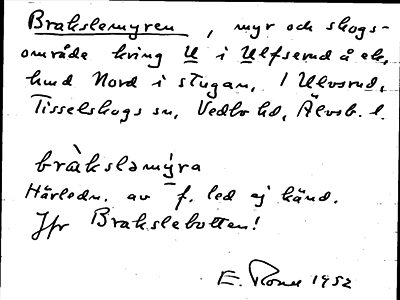 Brakslemyren, myr och skogs-
område kring U i Ulfserud å ek.
hund Nord i stugan, / Ulvsrud,
Tisselskogs sn, Vedbo hd, Älvsb. l.
bràkslamýra
Härledn. av f. led ej känd.
Jfr Brakslebotten!
E. 1952